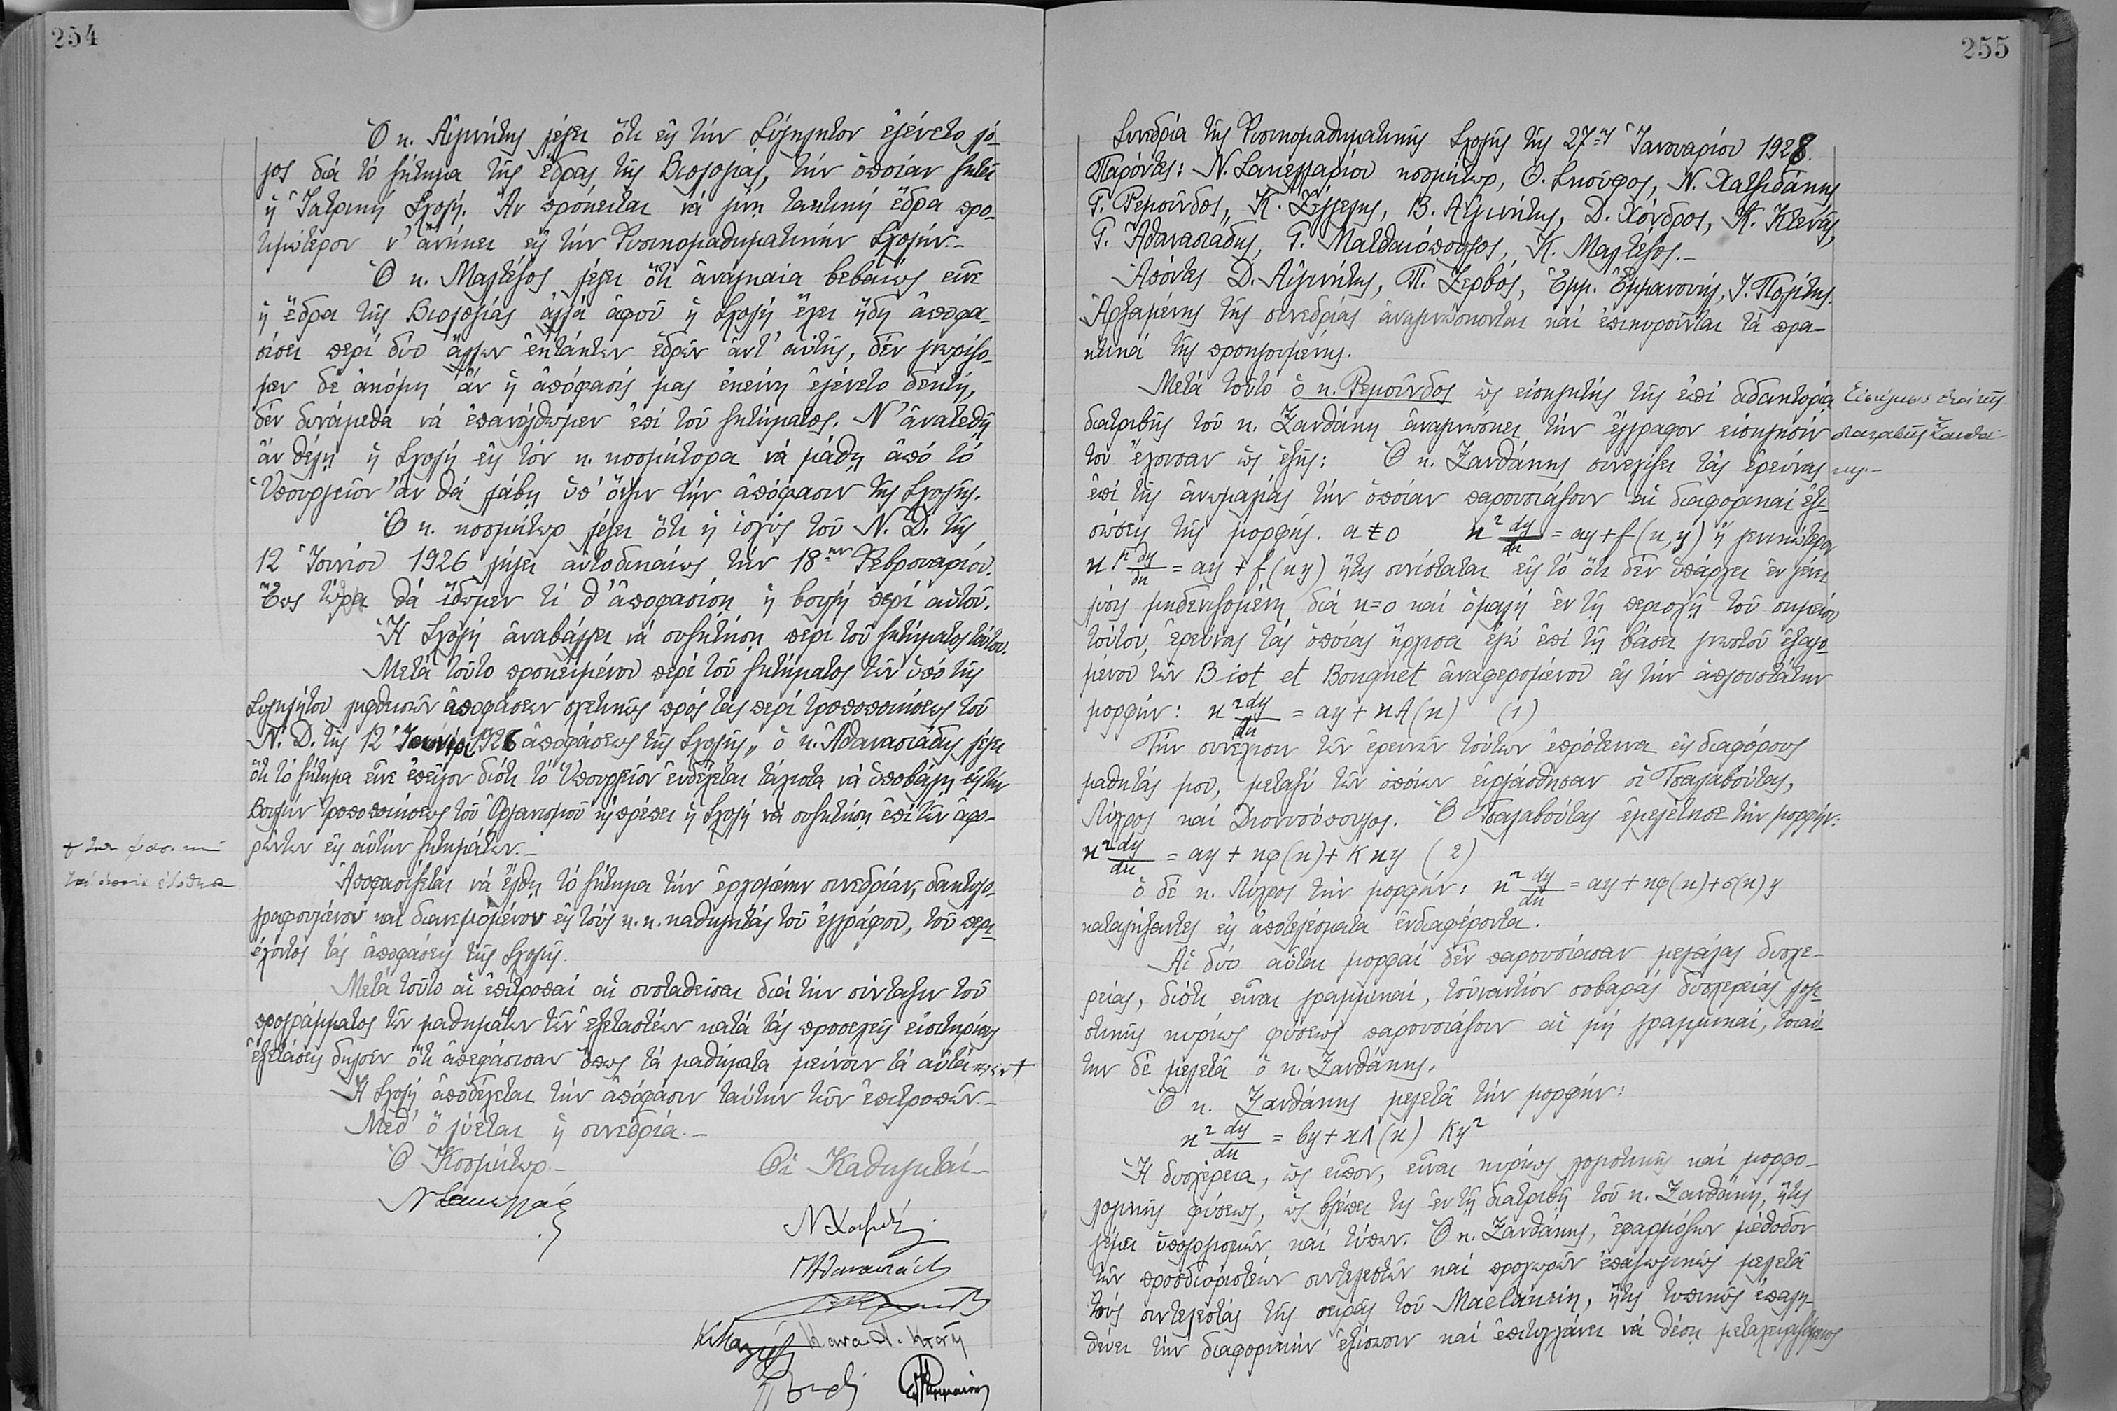 254
Ὁ κ. Αἰγινήτης λέγει ὅτι εἰς τὴν Σύγκλητον ἐγένετο λό-
γος διὰ τὸ ζήτημα τῆς ἕδρας τῆς Βιολογίας, τὴν ὁποίαν ζητεῖ
ἡ Ἰατρικὴ Σχολή. Ἂν πρόκειται νὰ γίνῃ τακτικὴ ἕδρα προ-
τιμώτερον ν' ἀνήκει εἰς τὴν Φυσικομαθηματικὴν Σχολήν.-
Ὁ κ. Μαλτέζος λέγει ὅτι ἀναγκαία βεβαίως εἶνε
ἡ ἕδρα τῆς Βιολογίας ἀλλὰ ἀφοῦ ἡ Σχολὴ ἔχει ἤδη ἀποφα-
σίσει περὶ δύο ἄλλων ἐκτάκτων ἑδρῶν ἀντ' αὐτῆς, δὲν γνωρίζο-
μεν δὲ ἀκόμη ἂν ἡ ἀπόφασίς μας ἐκείνη ἐγένετο δεκτή,
δὲν δυνάμεθα νὰ ἐπανέλθωμεν ἐπὶ τοῦ ζητήματος. Ν' ἀνατεθῇ
ἂν θέλῃ ἡ Σχολὴ εἰς τὸν κ. κοσμήτορα νὰ μάθῃ ἀπὸ τὸ
Ὑπουργεῖον ἂν θὰ λάβῃ ὑπ' ὄψιν τὴν ἀπόφασιν τῆς Σχολῆς.
Ὁ κ. κοσμήτωρ λέγει ὅτι ἡ ἰσχὺς τοῦ Ν. Δ. τῆς
12 Ἰουνίου 1926 λήγει αὐτοδικαίως τὴν 18ην Φεβρουαρίου.
Ἕως τώρα θὰ ἴδωμεν τί θ' ἀποφασίσῃ ἡ βουλὴ περὶ αὐτοῦ.
Ἡ Σχολὴ ἀναβάλλει νὰ συζητήσῃ περὶ τοῦ ζητήματος τούτου.
Μετὰ τοῦτο προκειμένου περὶ τοῦ ζητήματος τῶν ὑπὸ τῆς
Συγκλήτου ληφθεισῶν ἀποφάσεων σχετικῶς πρὸς τὰς περὶ τροποποιήσεως τοῦ
Ν. Δ. τῆς 12 Ἰουνίου 1926 ἀποφάσεως τῆς Σχολῆς, ὁ κ. Ἀθανασιάδης λέγει
ὅτι τὸ ζήτημα εἶνε ἐπεῖγον διότι τὸ Ὑπουργεῖον ἐνδέχεται τάχιστα νὰ ὑποβάλῃ εἰς τὴν
Βουλὴν τροποποιήσεις τοῦ Ὀργανισμοῦ πρέπει ἡ Σχολὴ νὰ συζητήσῃ ἐπὶ τῶν ἀφο-
ρώντων εἰς αὐτὴν ζητημάτων.-
Ἀποφασίζεται νὰ ἔλθῃ τὸ ζήτημα τὴν ἐρχομένην συνεδρίαν, δακτυλο-
γραφουμένου καὶ διανεμομένου εἰς τοὺς κ. κ. καθηγητὰς τοῦ ἐγγράφου, τοῦ περι-
έχοντος τὰς ἀποφάσεις τῆς Σχολῆς.
Μετὰ τοῦτο αἱ ἐπιτροπαὶ αἱ συσταθεῖσαι διὰ τὴν σύνταξιν τοῦ
προγράμματος τῶν μαθημάτων τῶν ἐξεταστέων κατὰ τὰς προσεχεῖς εἰσιτηρίους
ἐξετάσεις δηλοῦν ὅτι ἀπεφάσισαν ὅπως τὰ μαθήματα μείνουν τὰ αὐτὰ +
Ἡ Σχολὴ ἀποδέχεται τὴν ἀπόφασιν ταύτην τῶν ἐπιτροπῶν.-
Μεθ' ὃ λύεται ἡ συνεδρία.-
Ὁ Κοσμήτωρ.-
Οἱ Καθηγηταί-
255
Συνεδρία τῆς Φυσικομαθηματικῆς Σχολῆς τῆς 27ης Ἰανουαρίου 1928.
Παρόντες: Ν. Σακελλαρίου κοσμήτωρ, Θ. Σκοῦφος, Ν. Χατζιδάκης
Γ. Ρεμοῦνδος, Κ. Ζέγγελης, Β. Αἰγινήτης, Δ. Χόνδρος, Κ. Κτενᾶς,
Γ. Ἀθανασιάδης, Γ. Ματθαιόπουλος, Κ. Μαλτέζος.-
Ἀπόντες Δ. Αἰγινήτης, Π. Ζερβός, Ἐμμ. Ἐμμανουήλ, Ἰ. Πολίτης.
Ἀρξαμένης τῆς συνεδρίας ἀναγινώσκονται καὶ ἐπικυροῦνται τὰ πρα-
κτικὰ τῆς προηγουμένης.
Μετὰ τοῦτο ὁ κ. Ρεμοῦνδος ὡς εἰσηγητὴς τῆς ἐπὶ διδακτορίᾳ
διατριβῆς τοῦ κ. Ξανθάκη ἀναγινώσκει τὴν ἔγγραφον εἰσήγησίν
του ἔχουσαν ὡς ἑξῆς: Ὁ κ. Ξανθάκης συνεχίζει τὰς ἐρεύνας
ἐπὶ τῆς ἀνωμαλίας τὴν ὁποίαν παρουσιάζουν αἱ διαφορικαὶ ἐξι-
σώσεις τῆς μορφῆς. a ≠ 0 x² dy/dx = ay + f(x, y) ἢ γενικώτερον
x^κ dy/dx = ay + f(xy) ἥτις συνίσταται εἰς τὸ ὅτι δὲν ὑπάρχει ἐν γένει
λύσις μηδενιζομένη διὰ x=0 καὶ ὁμαλὴ ἐν τῇ περιοχῇ τοῦ σημείου
τούτου, ἐρεύνας τὰς ὁποίας ἤρχισα ἐγὼ ἐπὶ τῇ βάσει γνωστοῦ ἐξαγο-
μένου τῶν Biot et Bouquet ἀναφερομένου εἰς τὴν ἁπλουστάτην
μορφήν: x² dy/dx = ay + xA(x) (1)
Τὴν συνέχισιν τῶν ἐρευνῶν τούτων ἐπρότεινα εἰς διαφόρους
μαθητάς μου, μεταξὺ τῶν ὁποίων εἰργάσθησαν οἱ Τσαλαβούτας,
Πύλρος καὶ Διονυσόπουλος. Ὁ Τσαλαβούτας ἐμελέτησε τὴν μορφήν:
x² dy/dx = ay + xφ(x) + Kxy (2)
ὁ δὲ κ. Πύλρος τὴν μορφήν: x² dy/dx = ay + xφ(x) + σ(x)y
καταλήξαντες εἰς ἀποτελέσματα ἐνδιαφέροντα.
Αἱ δύο αὗται μορφαὶ δὲν παρουσίασαν μεγάλας δυσχε-
ρείας, διότι εἶναι γραμμικαί, τοὐναντίον σοβαρὰς δυσχερείας λογι-
στικῆς κυρίως φύσεως παρουσιάζουν αἱ μὴ γραμμικαί, τοιαύ-
την δὲ μελετᾷ ὁ κ. Ξανθάκης.
Ὁ κ. Ξανθάκης μελετᾷ τὴν μορφήν:
x² dy/dx = by + xΛ(x) Ky²
Ἡ δυσχέρεια, ὡς εἶπον, εἶναι κυρίως λογιστικῆς καὶ μορφο-
λογικῆς φύσεως, ὡς βλέπει τις ἐν τῇ διατριβῇ τοῦ κ. Ξανθάκη, ἥτις
γέμει ὑπολογισμῶν καὶ τύπων. Ὁ κ. Ξανθάκης, ἐφαρμόζων μέθοδον
τῶν προσδιοριστέων συντελεστῶν καὶ προχωρῶν ἐπαγωγικῶς μελετᾷ
τοὺς συντελεστὰς τῆς σειρᾶς τοῦ Maclaurin, ἥτις τυπικῶς ἐπαλη-
θεύει τὴν διαφορικὴν ἐξίσωσιν καὶ ἐπιτυγχάνει νὰ θέσῃ μεταχειριζόμενος
Εἰσήγησις ἐπὶ τῆς
διατριβῆς Ξανθά-
κη.-